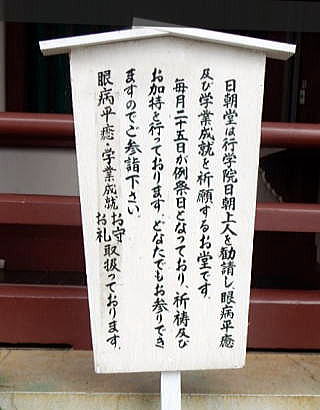 日朝堂は行学院日朝上人を勧請し、眼病平癒
及び学業成就を祈願するお堂です。
毎月二十五日が例祭日となっており、祈祷及び
お加持を行っております。どなたでもお参りでき
ますのでご参詣下さい。
眼病平癒・学業成就 お守 お札 取扱っております。